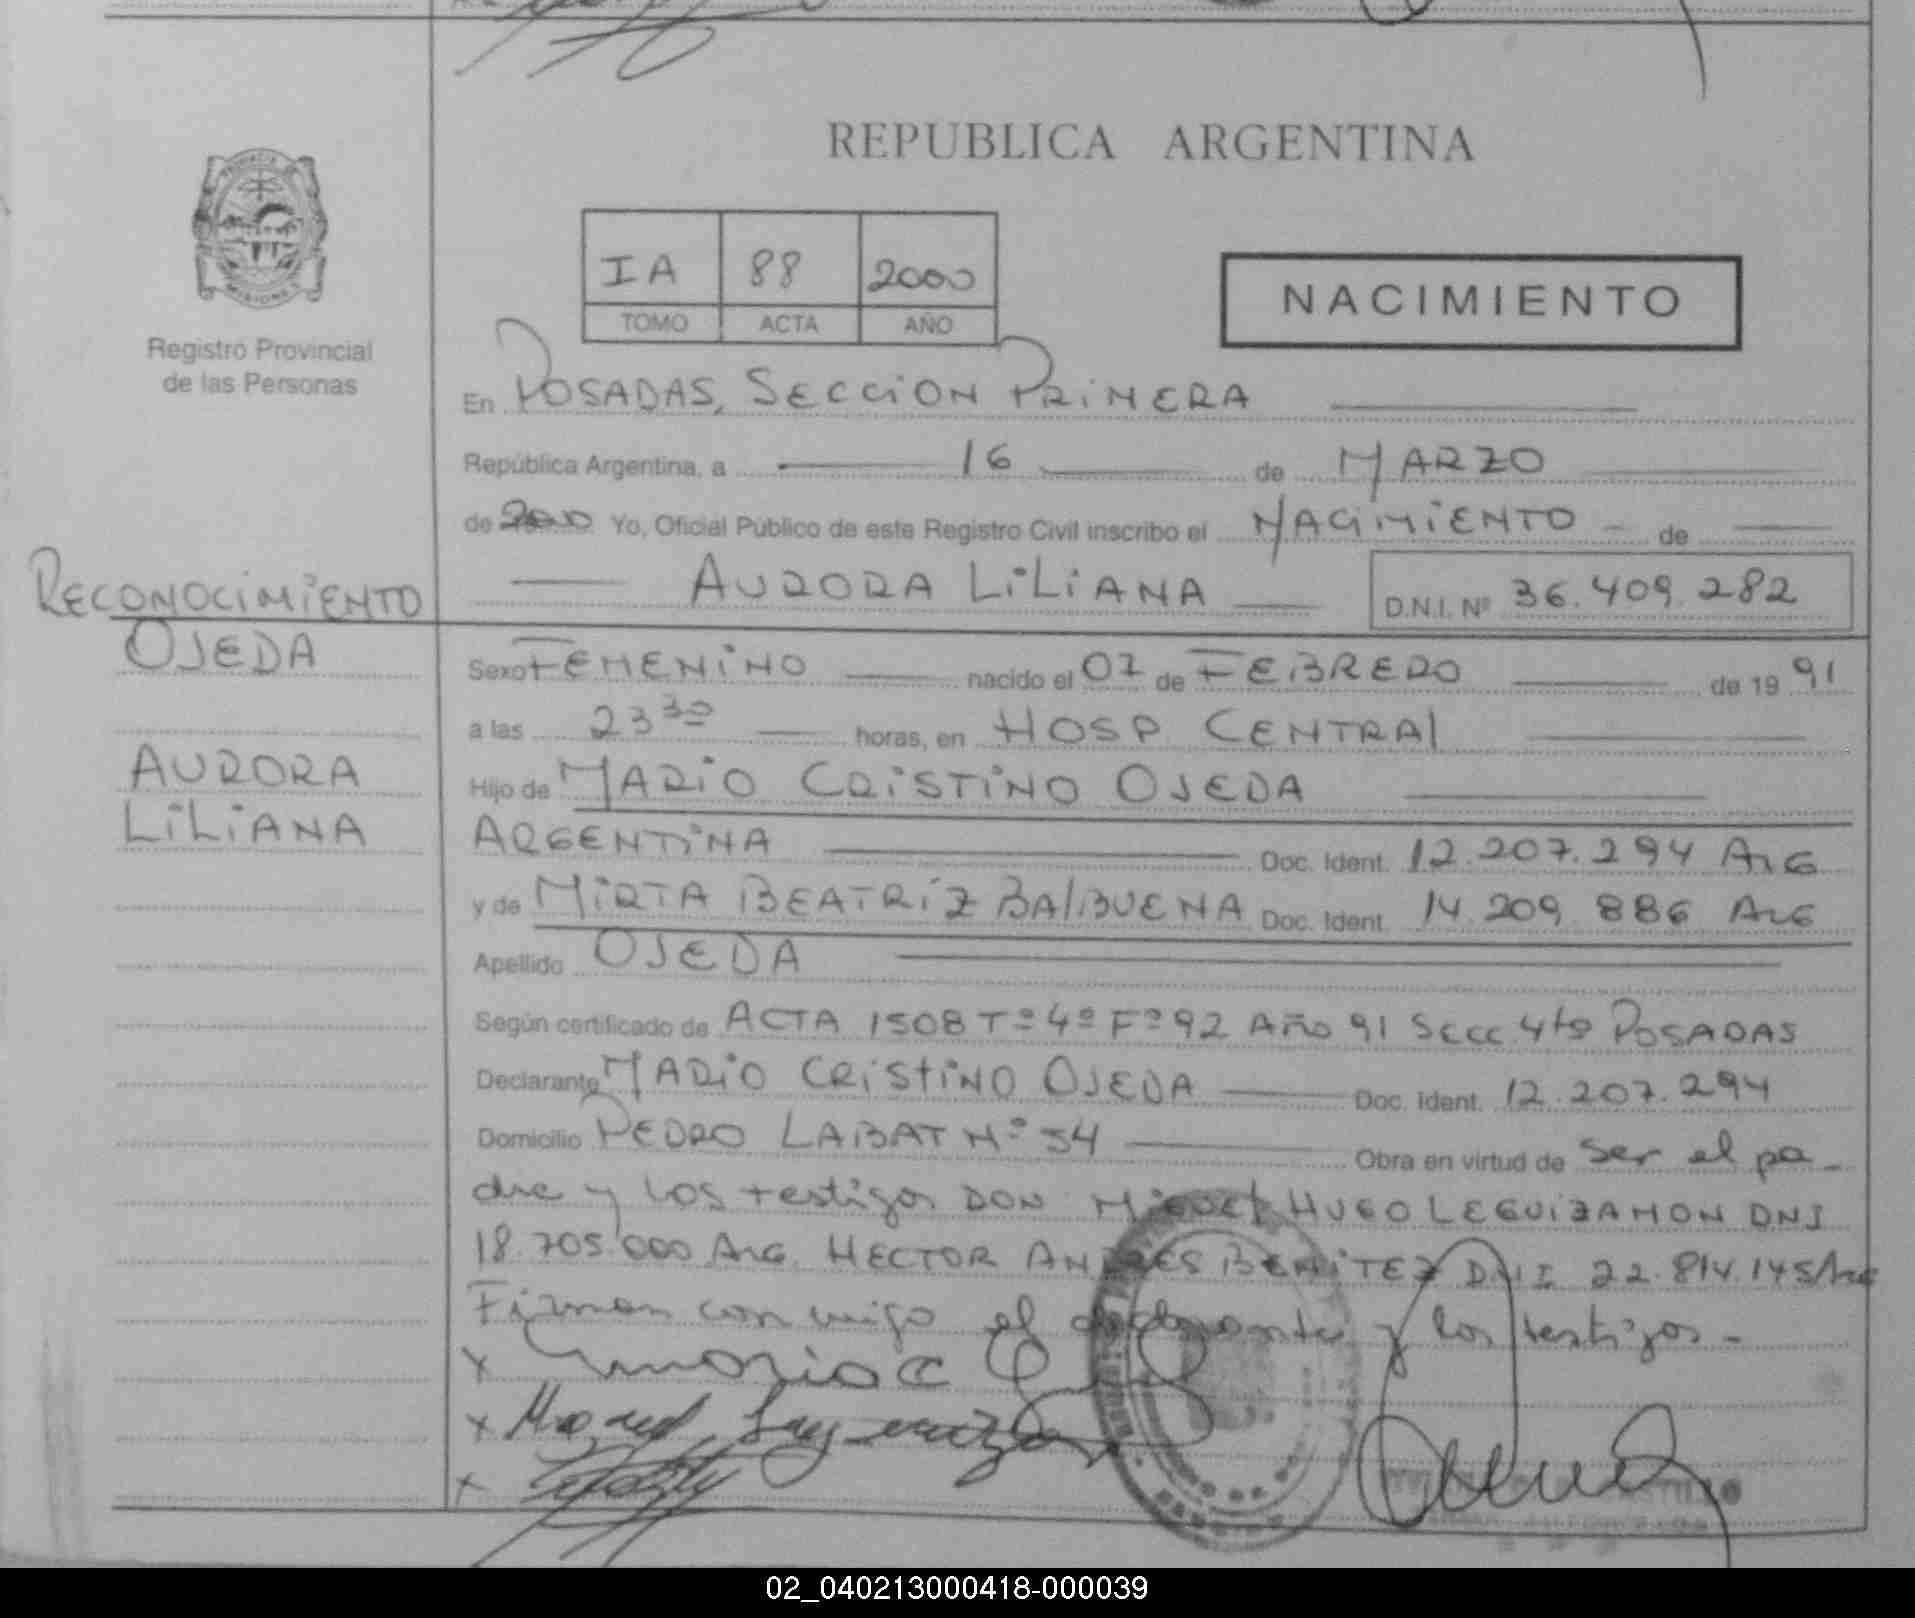 REPUBLICA ARGENTINA
IA 88 2000
TOMO ACTA AÑO
NACIMIENTO
Registro Provincial
de las Personas
En POSADAS, SECCION PRIMERA
República Argentina, a 16 de MARZO
de 2000 Yo, Oficial Público de este Registro Civil inscribo el NACIMIENTO de
AURORA LILIANA D.N.I. Nº 36.409.282
RECONOCIMIENTO
OJEDA
AURORA
LILIANA
Sexo FEMENINO nacido el 07 de FEBRERO de 19 91
a las 23 30 horas, en HOSP CENTRAL
Hijo de MARIO CRISTINO OJEDA
ARGENTINA Doc. Ident. 12.207.294 ARG
y de MIRTA BEATRIZ BALBUENA Doc. Ident. 14.209.886 ARG
Apellido OJEDA
Según certificado de ACTA 1508 Tº 4º Fº 92 AÑO 91 SECC 4ta POSADAS
Declarante MARIO CRISTINO OJEDA Doc. Ident. 12.207.294
Domicilio PEDRO LABAT Nº 54 Obra en virtud de ser el pa-
dre y los testigos DON MIGUEL HUGO LEGUIZAMON DNI
18.705.000 ARG. HECTOR ANDRES BENITEZ DNI 22.814.145 Arg
Firman conmigo el declarante y los testigos -
x Mario C O
x
x
02_040213000418-000039